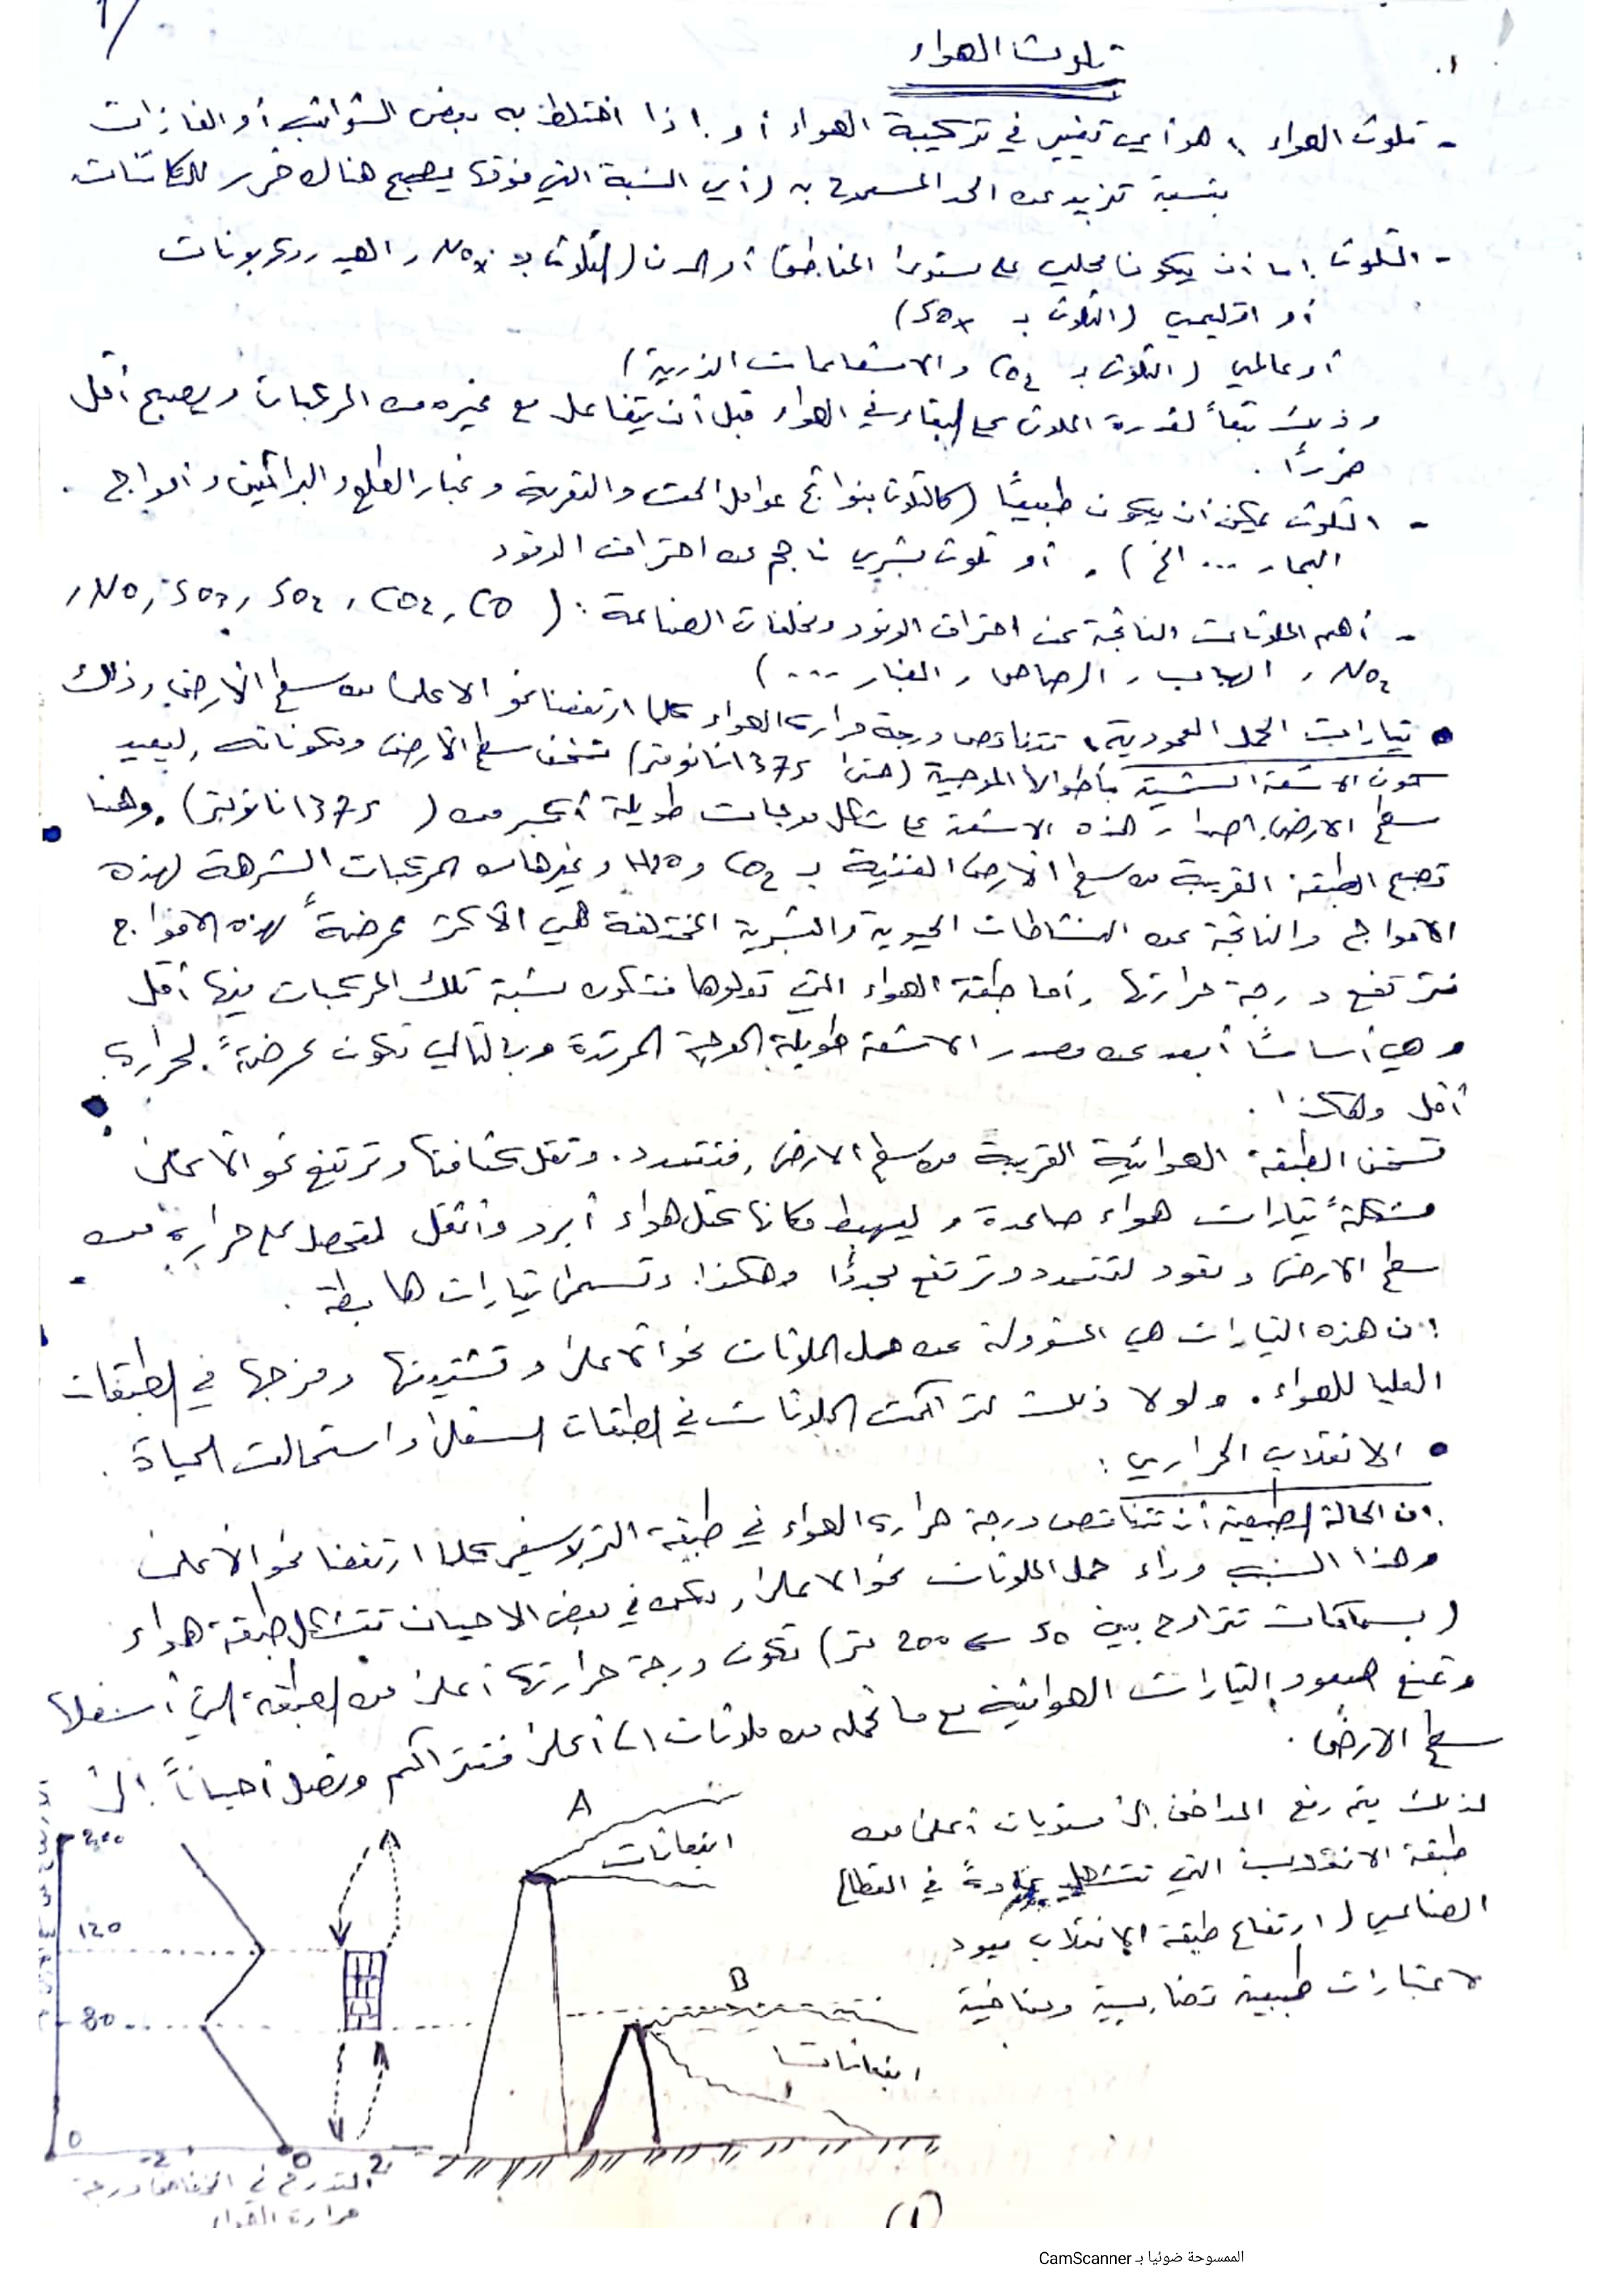 تلوث الهواء
- تلوث الهواء: هو أي تغيير في تركيبة الهواء أو إذا اختلط به بعض الشوائب أو الغازات
بنسبة تزيد عن الحد المسموح به (أي النسبة التي فوقها يصبح هناك ضرر للكائنات
- التلوث إما أن يكون محلي على مستوى المناطق أو المدن (التلوث بـ NOx، الهيدروكربونات
أو اقليمي (التلوث بـ SOx)
أو عالمي (التلوث بـ CO2 والاشعاعات الذرية)
وذلك تبعاً لقدرة الملوث على البقاء في الهواء قبل أن يتفاعل مع غيره من المركبات ويصبح أقل
ضررًا.
- التلوث يمكن أن يكون طبيعيًا (كالتلوث بنواتج عوامل الحت والتعرية وغبار الطلع والبراكين وأمواج
البحار ... الخ). أو تلوث بشري ناجم عن احتراق الوقود
- أهم الملوثات الناتجة عن احتراق الوقود ومخلفات الصناعة: (CO, CO2, SO2, SO3, NO,
NO2, الهباب, الرصاص, الغبار ...)
• تيارات الحمل العمودية: تتناقص درجة حرارة الهواء كلما ارتفعنا نحو الاعلى من سطح الأرض, وذلك
كون الاشعة الشمسية بأطوالها الموجية (حتى 1375 نانومتر) تسخن سطح الأرض ومكوناته, ليعيد
سطح الارض اصدار هذه الاشعة على شكل موجات طويلة أكبر من (1375 نانومتر). وهنا
تصبح الطبقة القريبة من سطح الأرض الغنية بـ CO2 و H2O وغيرها من المركبات الشرهة لهذه
الأمواج والناتجة عن النشاطات الحيوية والبشرية المختلفة هي الأكثر عرضةً لهذه الأمواج
فترتفع درجة حرارتها, أما طبقة الهواء التي تعلوها فتكون نسبة تلك المركبات فيها أقل
وهي أساسًا أبعد عن مصدر الاشعة طويلة الموجة المرتدة وبالتالي تكون عرضةً لحرارة
أقل وهكذا.
تسخن الطبقة الهوائية القريبة من سطح الارض, فتتمدد. وتقل كثافتها وترتفع نحو الأعلى
مشكلةً تيارات هواء صاعدة, وليهبط مكانها كتل هواء أبرد وأثقل لتحصل على حرارة من
سطح الارض وتعود لتتمدد وترتفع مجددًا وهكذا. وتسمى تيارات هابطة.
إن هذه التيارات هي المسؤولة عن حمل الملوثات نحو الأعلى وتشتيتها ومزجها في الطبقات
العليا للهواء. ولولا ذلك لتراكمت الملوثات في الطبقات السفلى واستحالت الحياة.
• الانقلاب الحراري:
إن الحالة الطبيعية أن تتناقص درجة حرارة الهواء في طبقة التربوسفير كلما ارتفعنا نحو الأعلى
وهذا السبب وراء حمل الملوثات نحو الاعلى, ولكن في بعض الاحيان تتشكل طبقة هواء
(بسماكات تتراوح بين 50 ← 200 متر) تكون درجة حرارتها أعلى من الطبقة التي أسفلها
وتمنع صعود التيارات الهوائية مع ما تحمله من ملوثات إلى أعلى فتتراكم وتصل أحيانًا إلى
سطح الارض.
لذلك يتم رفع المداخن إلى مستويات أعلى من
طبقة الانقلاب التي تتشكل عادةً في القطاع
الصناعي (ارتفاع طبقة الانقلاب يعود
لاعتبارات طبيعية تضاريسية ومناخية
A
انبعاثات
B
انبعاثات
200
120
80
0
-2 0 2
التدرج في انخفاض درجة
حرارة الهواء
(1)
الممسوحة ضوئيا بـ CamScanner